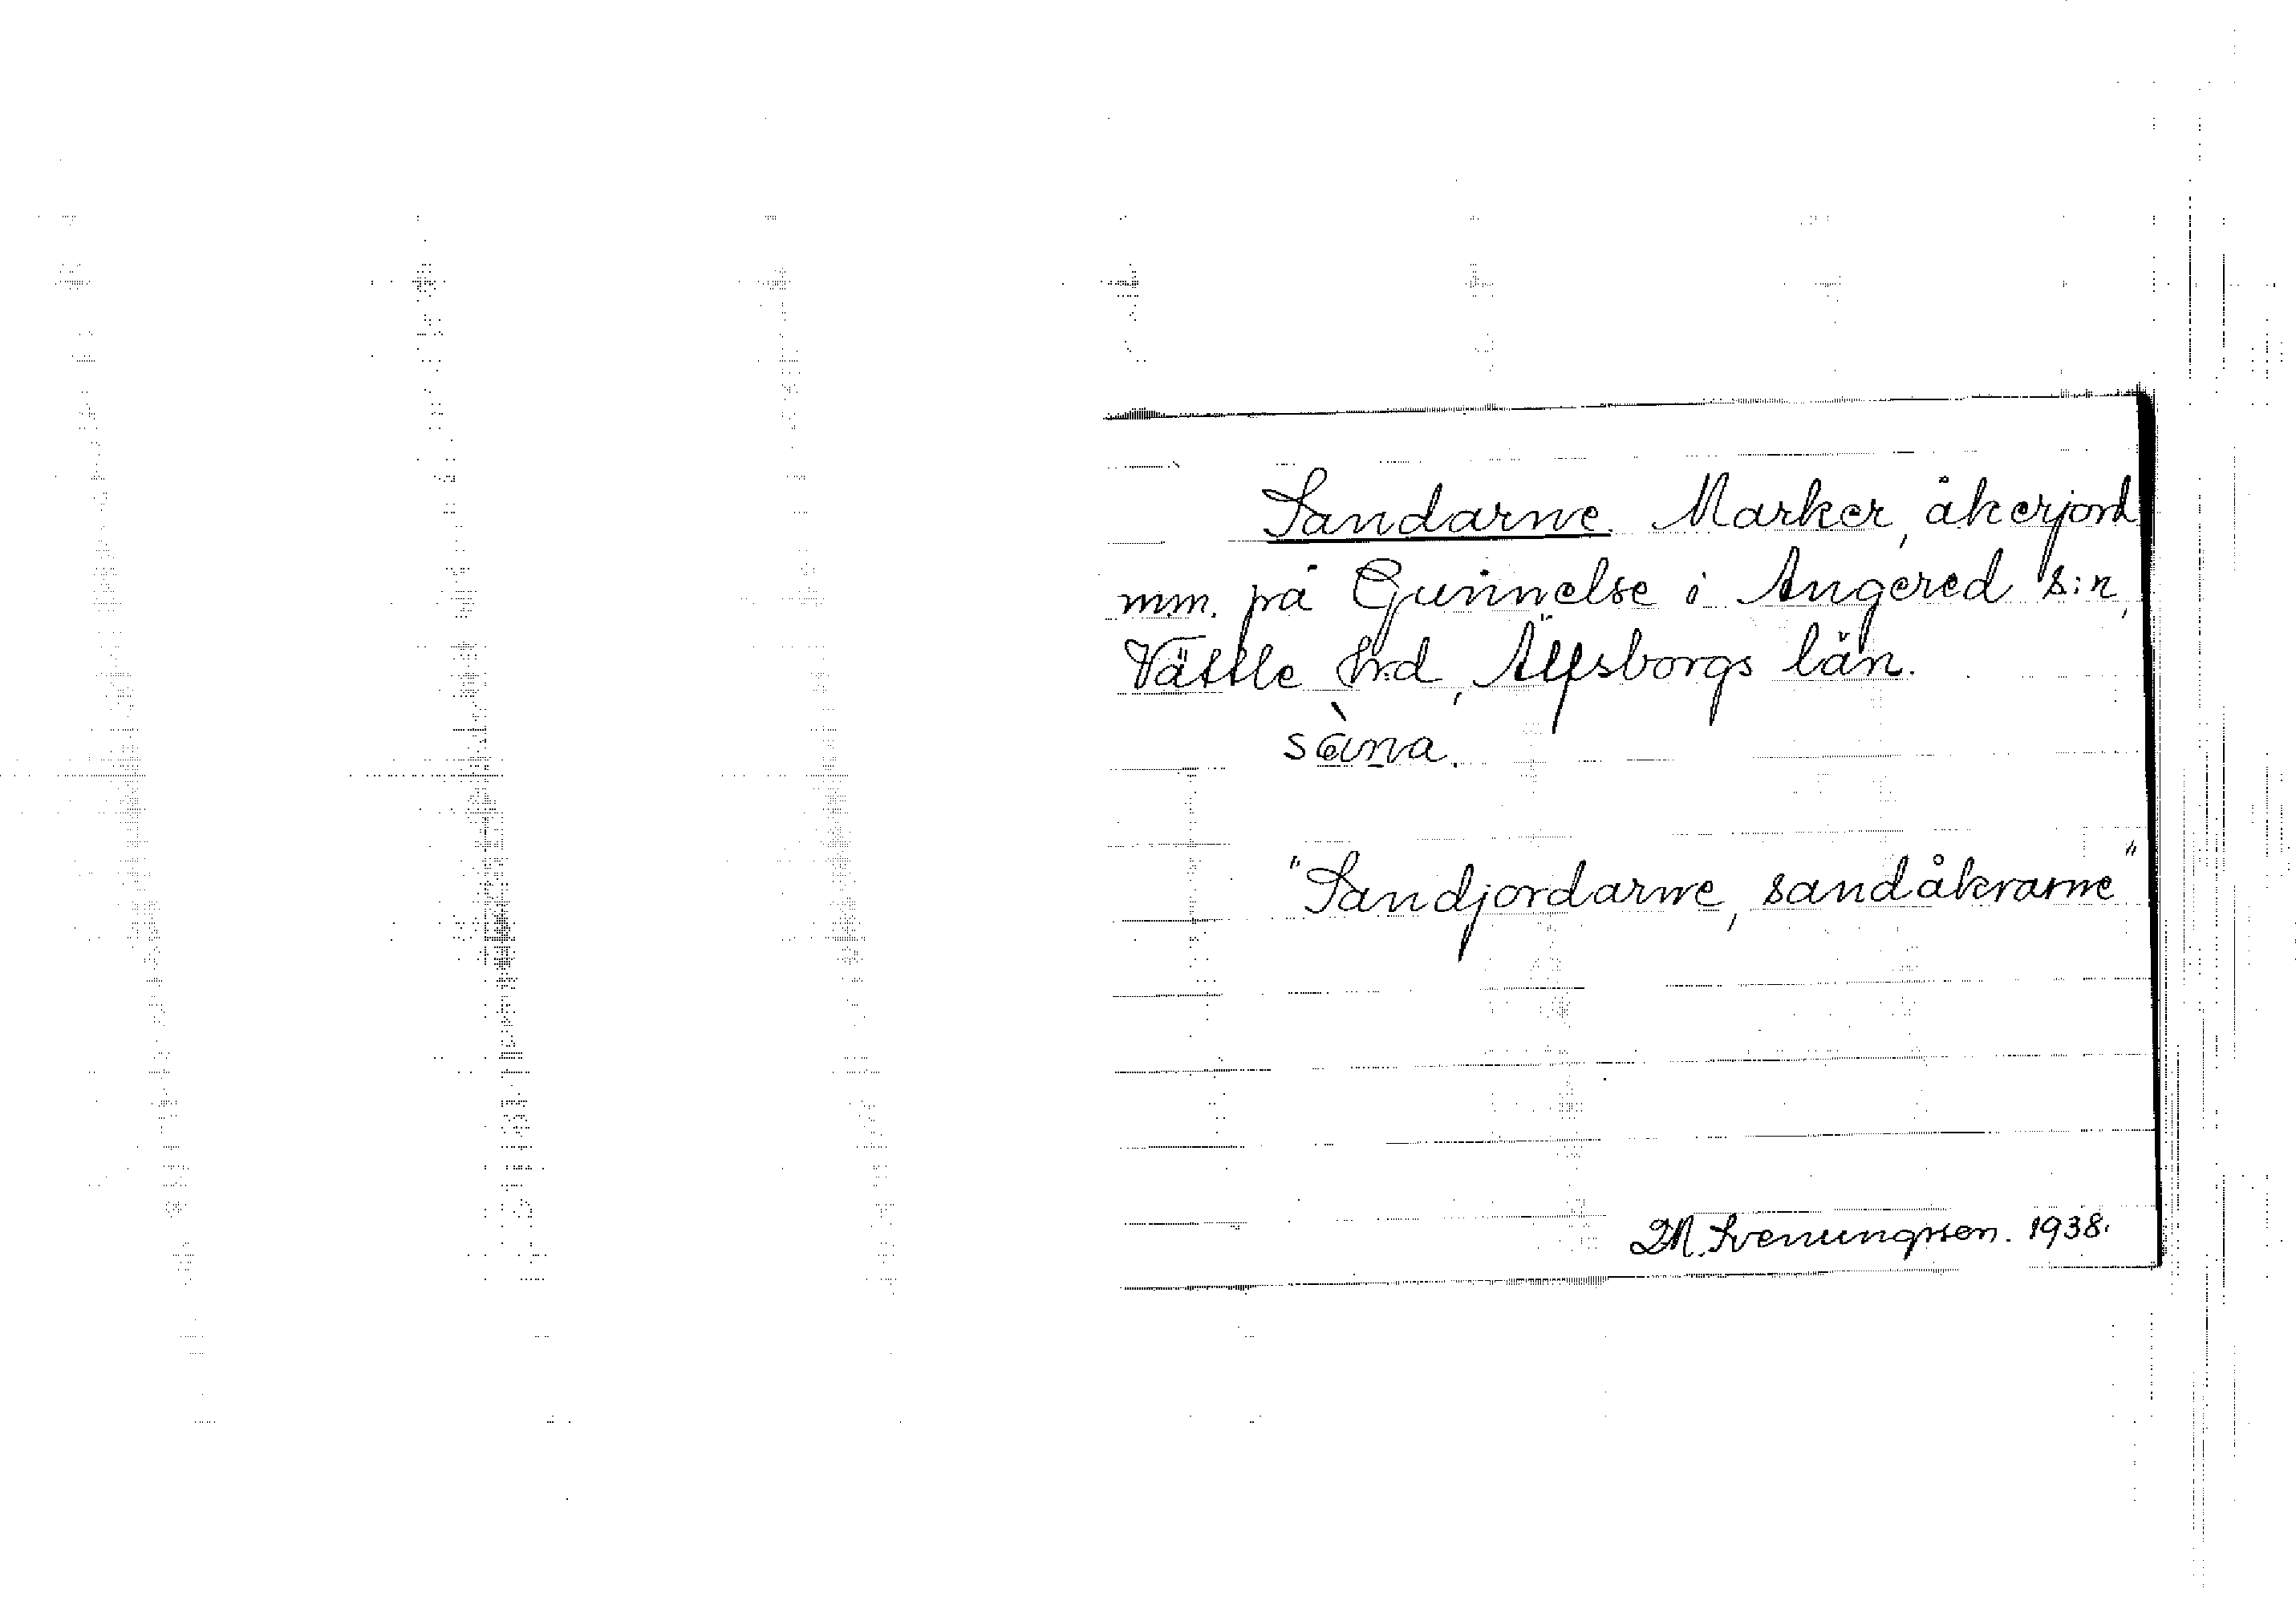 Sandarne. Marker, åkerjord
mm. på Gunnelse i Angered s:n,
Vättle hrd, Älfsborgs län.
sàna.
"Sandjordarne, sandåkrarne"
D.M. Svenungsson. 1938.